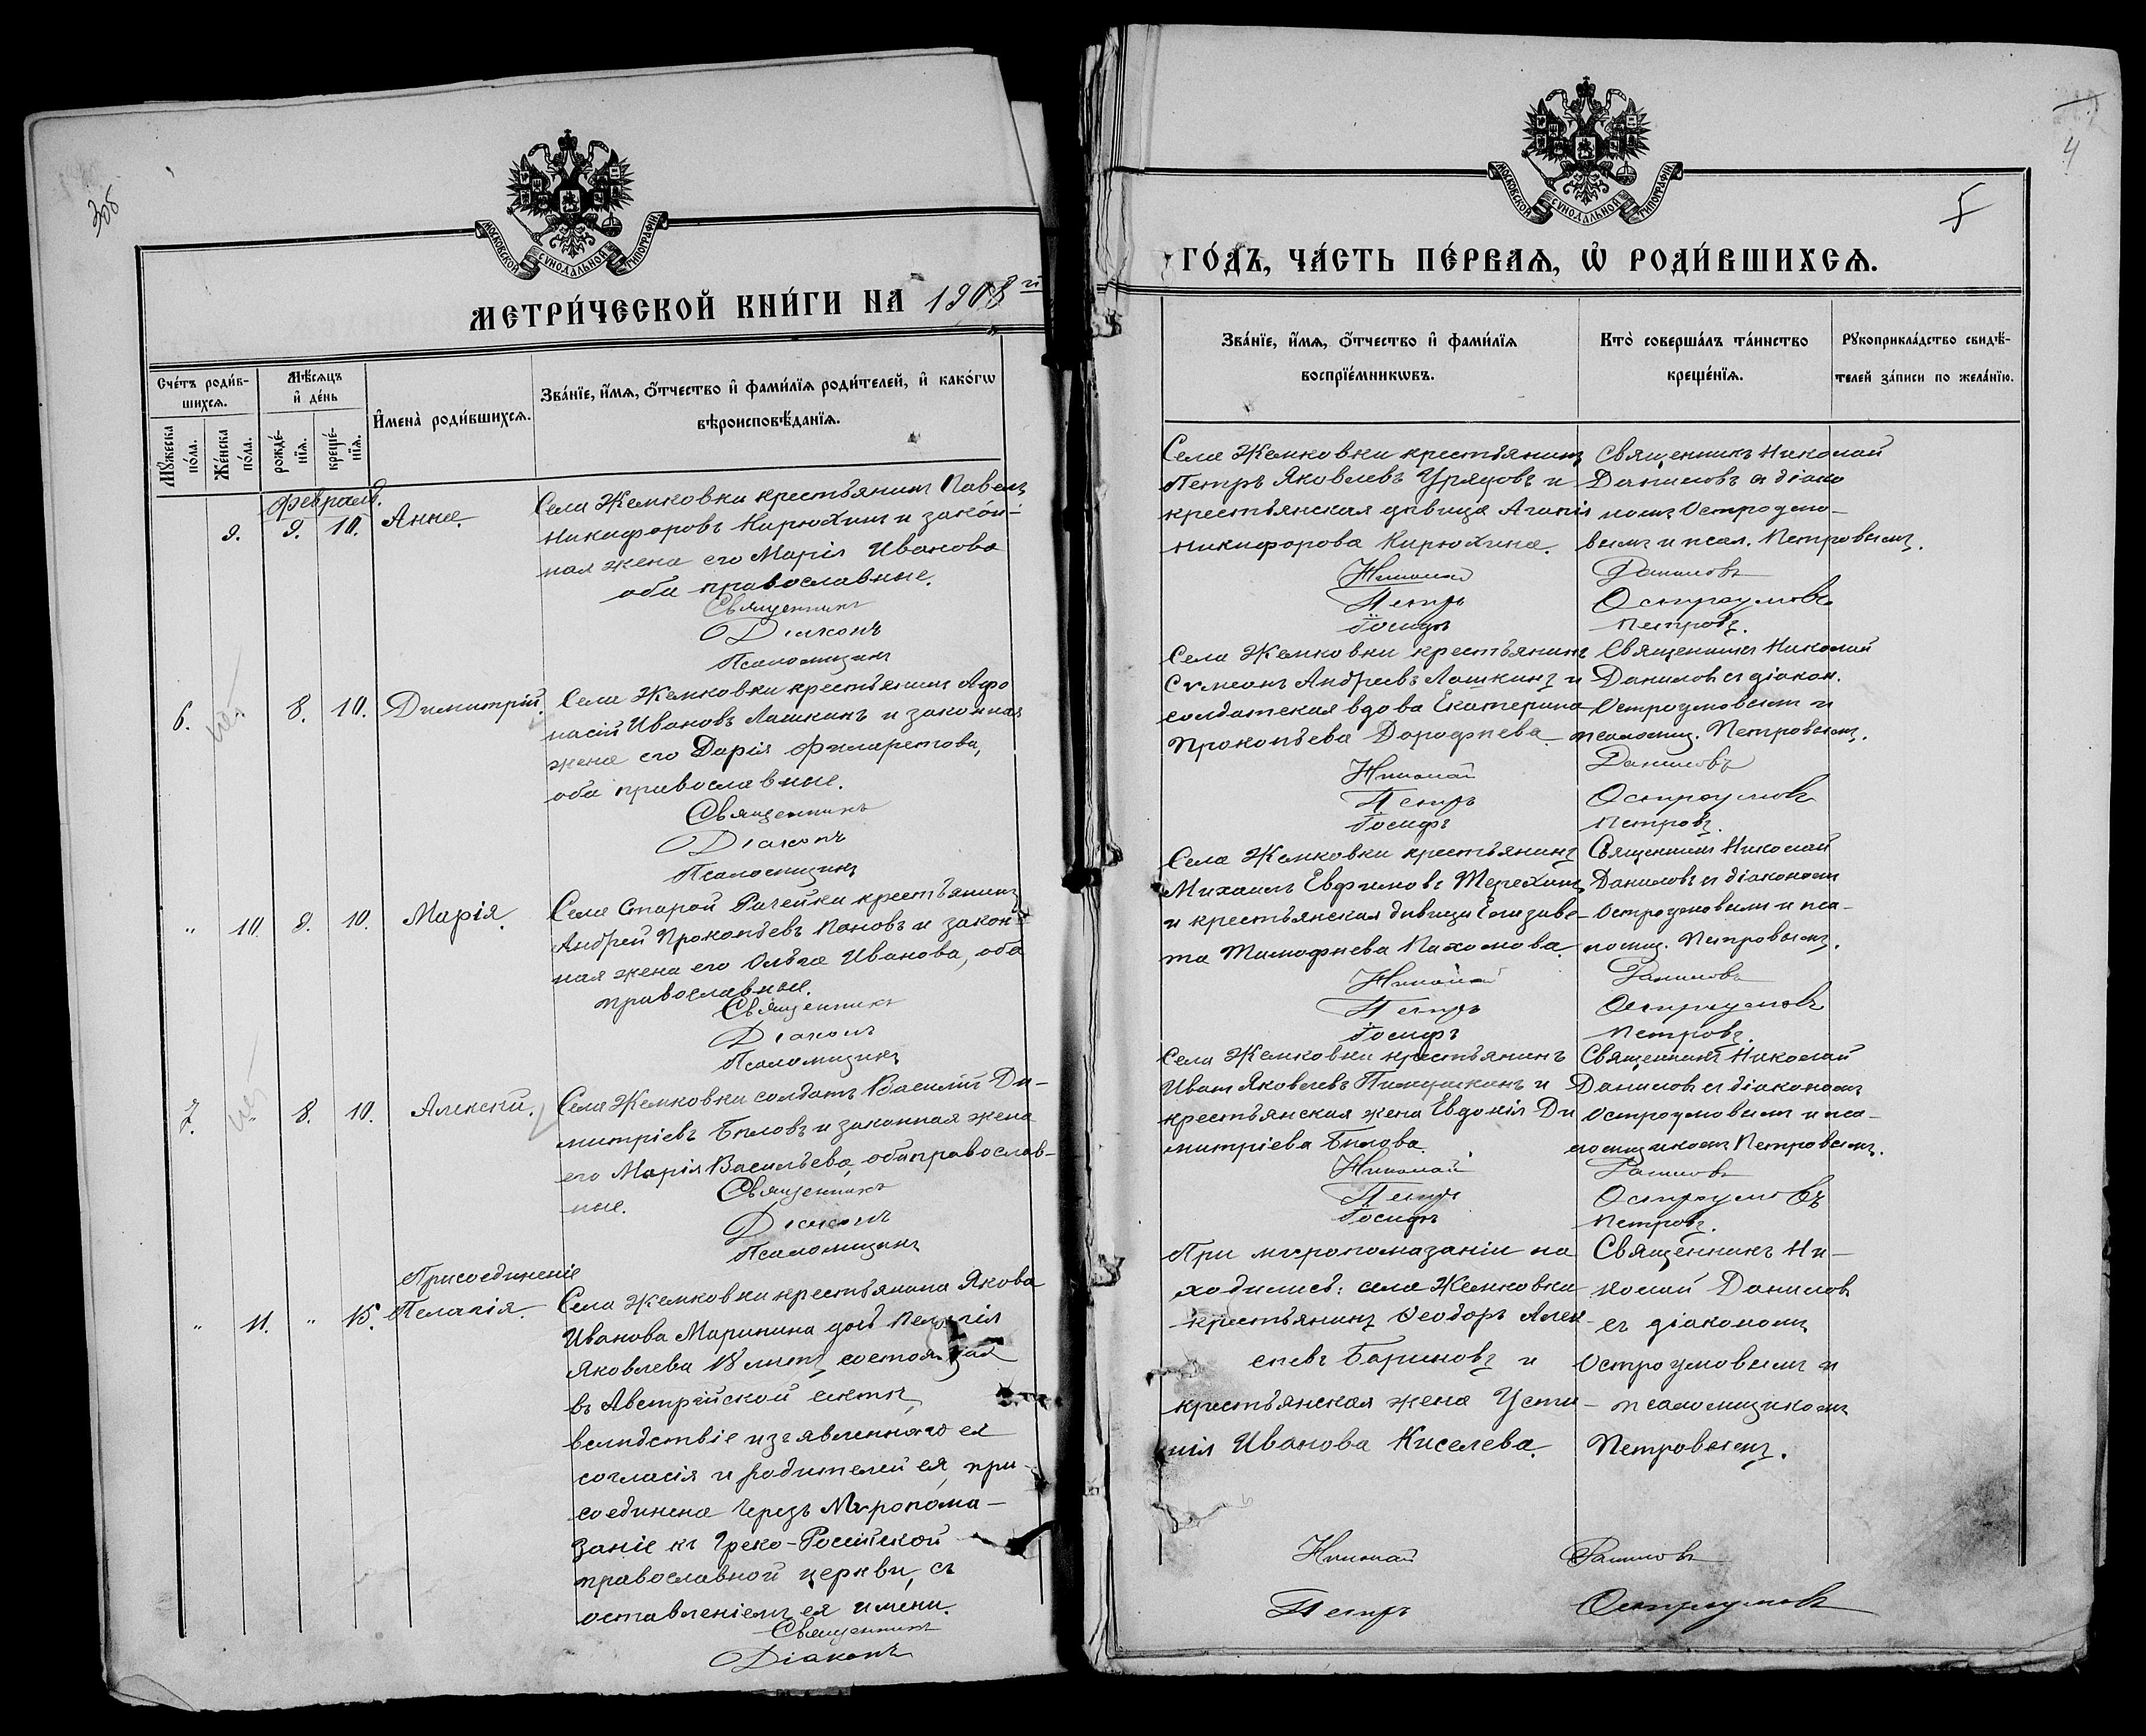 308
МОСКОВСКОЙ СѴНОДАЛЬНОЙ ТИПОГРАФІИ
МЕТРИ́ЧЕСКОЙ КНИ́ГИ НА 1908 й
Сче́тъ роди́в-
шихсѧ.
Мѣ́сѧцъ
и҆ де́нь
Мꙋ́жеска
по́ла.
Же́нска
по́ла.
рожде́-
нїѧ.
креще́-
нїѧ.
И҆мена̀ роди́вшихсѧ.
Зва́нїе, и҆́мѧ, ѻ҆́тчество и҆ фами́лїѧ роди́телей, и҆ како́гѡ
вѣроисповѣ́данїѧ.
Февраль.
9. 9. 10. Анна.
Села Жемковки крестьянинъ Павелъ
Никифоровъ Кирюхинъ и закон-
ная жена его Марія Иванова
оба православные.
Священникъ
Діаконъ
Псаломщикъ
6. 8. 10. Димитрій.
Села Жемковки крестьянинъ Афа
насій Ивановъ Лашкинъ и законная
жена его Дарія Филаретова,
оба православные.
Священникъ
Діаконъ
Псаломщикъ
" 10. 8. 10. Марія.
Села Старой Рачейки крестьянинъ
Андрей Прокопьевъ Пановъ и закон-
ная жена его Ольга Иванова, оба
православные.
Священникъ
Діаконъ
Псаломщикъ
7. " 8. 10. Алексій.
Села Жемковки солдатъ Василій Ди-
митріевъ Бѣловъ и законная жена
его Марія Васильева, оба православ-
ные.
Священникъ
Діаконъ
Псаломщикъ
Присоединеніе
" 11. " 15. Пелагія.
Села Жемковки крестьянина Якова
Иванова Маринина дочь Пелагія
Яковлева 18 лѣтъ, состоящая
въ Австрійской сектѣ,
вслѣдствіе изъявленнаго ея
согласія и родителей ея, при-
соединена чрезъ Мѵропома-
заніе къ Греко-Россійской
православной церкви, съ
оставленіемъ ея имени.
Священникъ
Діаконъ
4
5
МОСКОВСКОЙ СѴНОДАЛЬНОЙ ТИПОГРАФІИ
ГО́ДЪ, ЧА́СТЬ ПЕ́РВАѦ, Ѡ҆ РОДИ́ВШИХСѦ.
Зва́нїе, и҆́мѧ, ѻ҆́тчество и҆ фами́лїѧ
воспрїе́мникѡвъ.
Кто̀ соверша́лъ та́инство
креще́нїѧ.
Рꙋкоприкла́дство свидѣ́-
телей за́писи по жела́нїю.
Села Жемковки крестьянинъ
Петръ Яковлевъ Урядовъ и
крестьянская дѣвица Агапія
Никифорова Кирюхина.
Священникъ Николай
Даниловъ съ діако
номъ Остроумо-
вымъ и псал. Петровымъ.
Николай Даниловъ
Петръ Остроумовъ
Іосифъ Петровъ.
Села Жемковки крестьянинъ
Сѵмеонъ Андреевъ Лашкинъ и
солдатская вдова Екатерина
Прокопьева Дорофѣева
Священникъ Николай
Даниловъ съ діакон.
Остроумовымъ и
псаломщ. Петровымъ.
Николай Даниловъ
Петръ Остроумовъ
Іосифъ Петровъ.
Села Жемковки крестьянинъ
Михаилъ Евфимовъ Терехинъ
и крестьянская дѣвица Елизаве-
та Тимофѣева Пахомова.
Священникъ Николай
Даниловъ съ діакономъ
Остроумовымъ и пса-
ломщ. Петровымъ.
Николай Даниловъ
Петръ Остроумовъ
Іосифъ Петровъ.
Села Жемковки крестьянинъ
Иванъ Яковлевъ и
крестьянская жена Евдокія Ди
митріева Бѣлова.
Священникъ Николай
Даниловъ съ діакономъ
Остроумовымъ и пса-
ломщикомъ Петровымъ.
Николай Даниловъ
Петръ Остроумовъ
Іосифъ Петровъ.
При мѵропомазаніи на
ходились: села Жемковки
крестьянинъ Ѳеодоръ Алек-
сѣевъ Бариновъ и
крестьянская жена Усти-
нія Иванова Киселева.
Священникъ Ни-
колай Даниловъ
съ діакономъ
Остроумовымъ и
псаломщикомъ
Петровымъ.
Николай Даниловъ
Петръ Остроумовъ